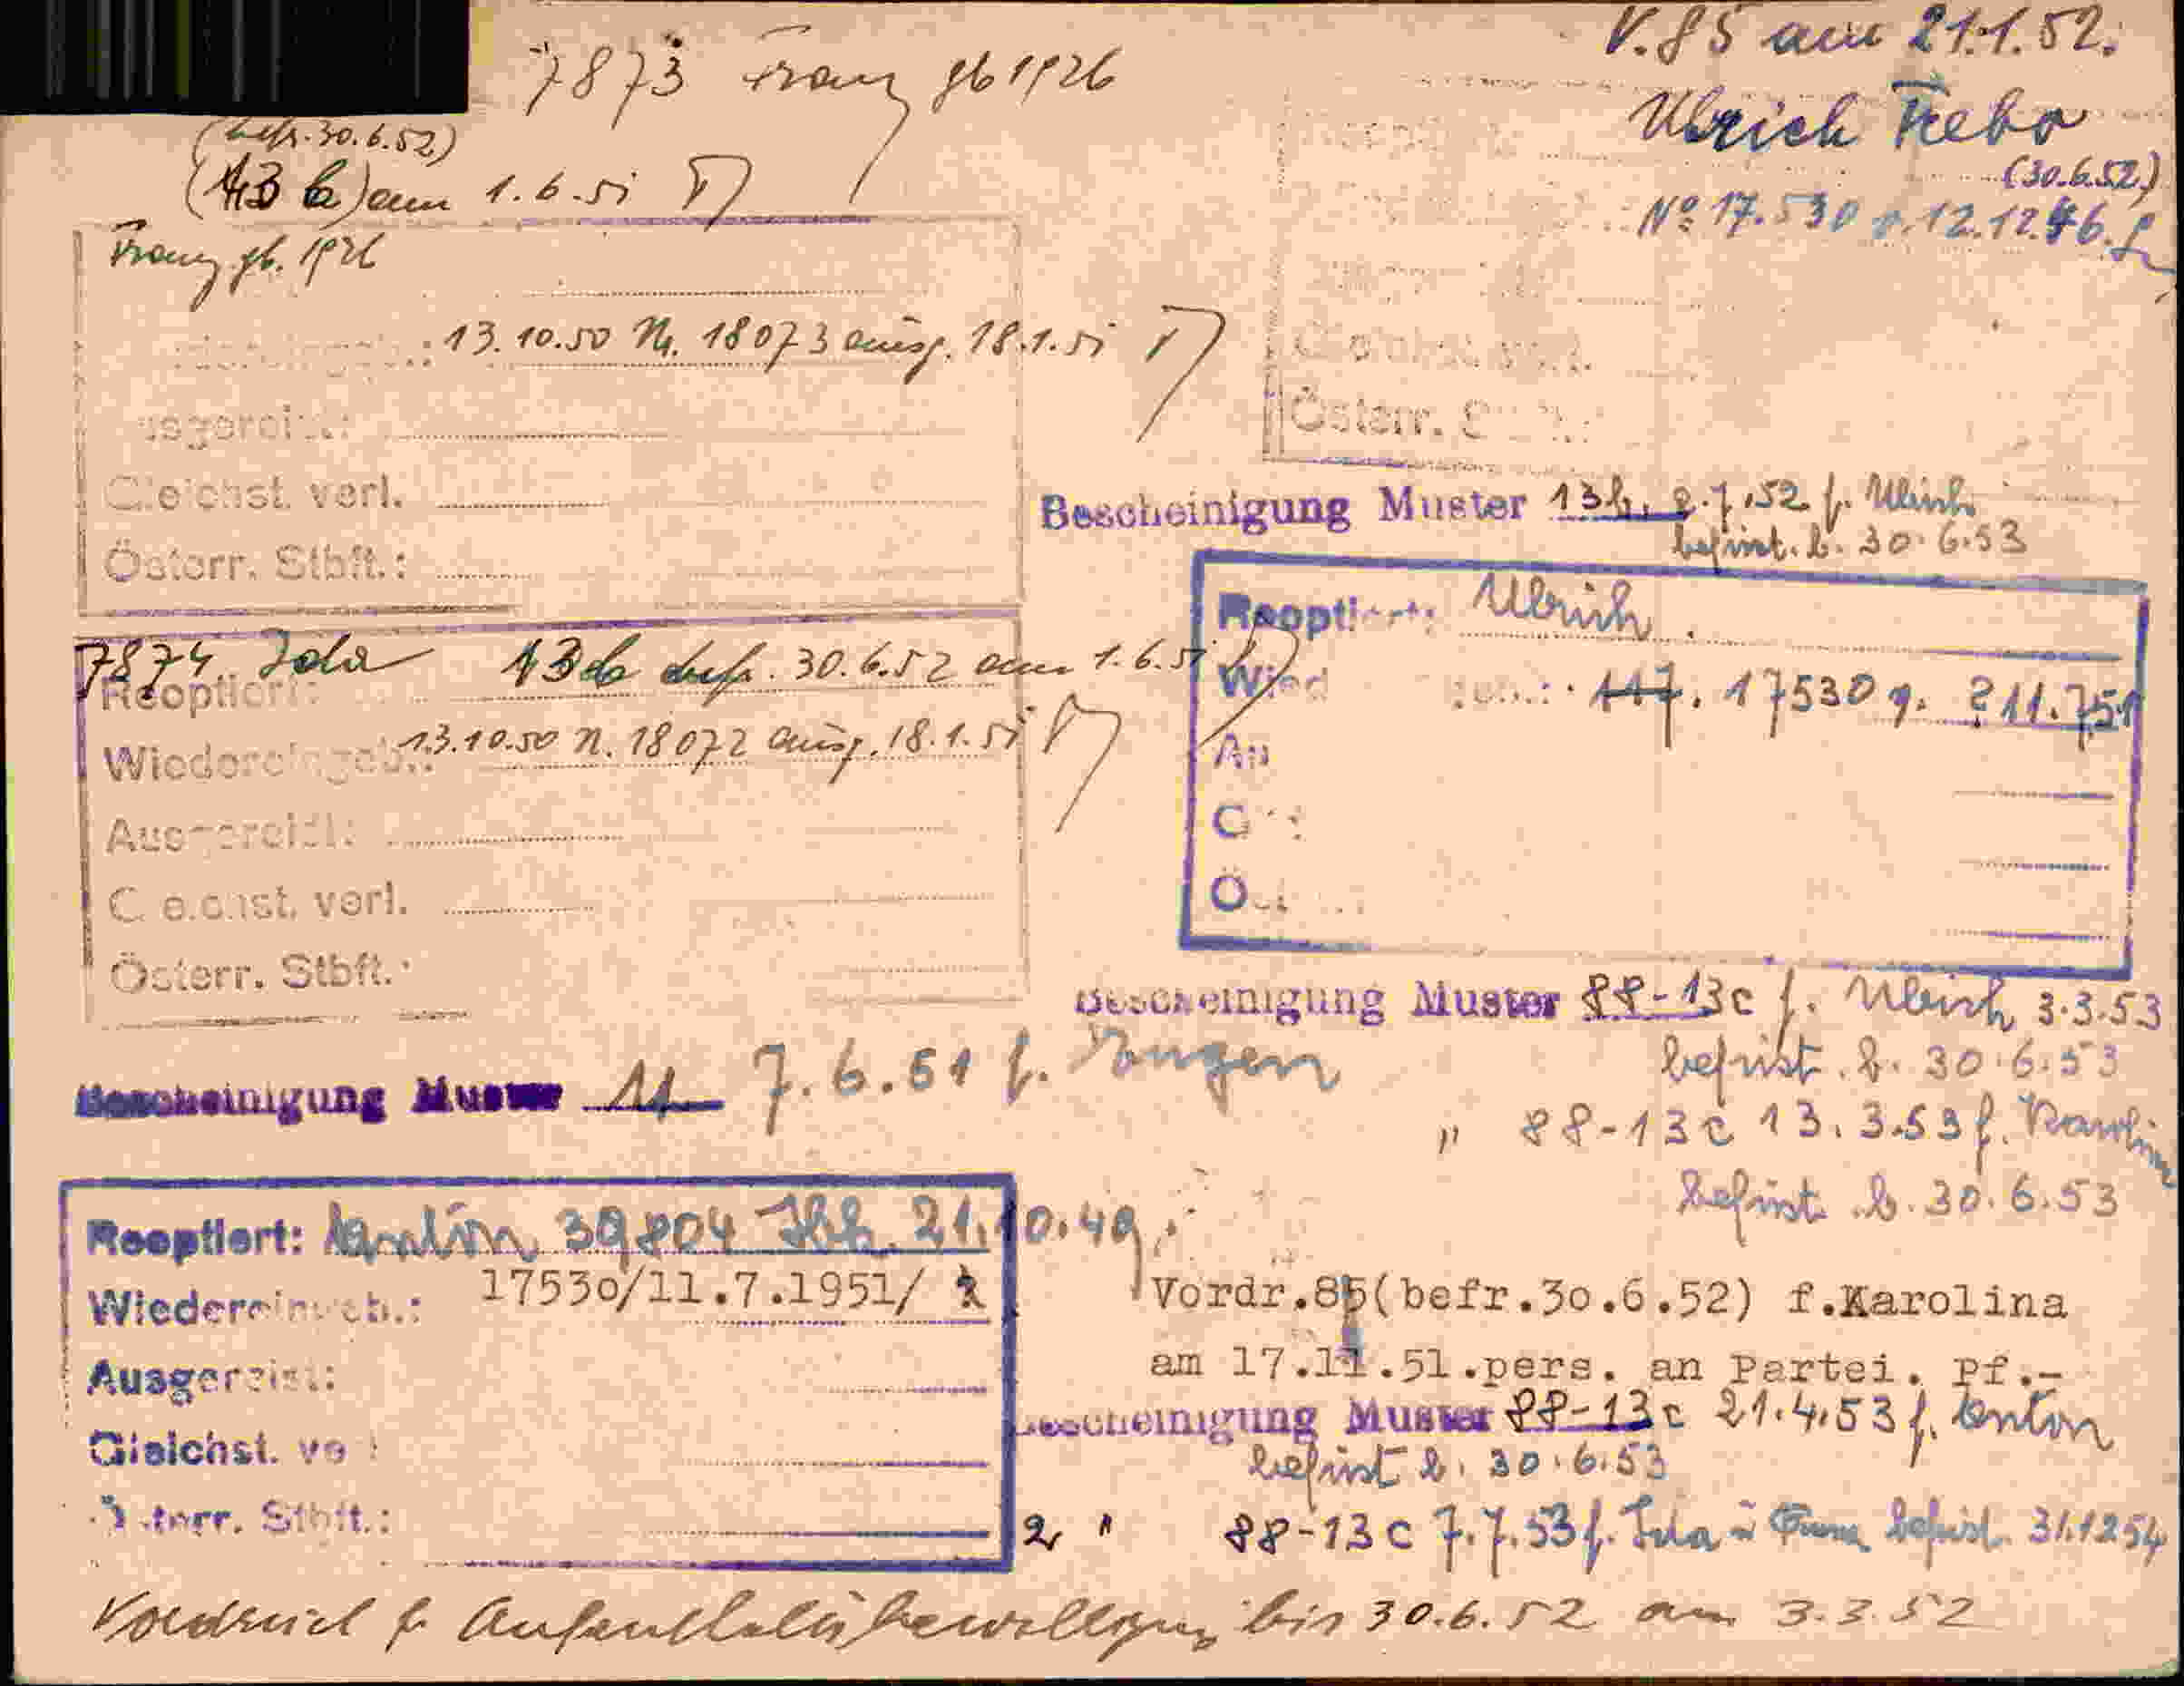 7873 Franz gb 1926
(befr. 30.6.52)
(13 b) am 1.6.51
Franz gb. 1926
: 13.10.50 Nr. 18073 ausg. 18.1.51
Ausgereist:
Gleichst. verl.
Österr. Stbft.:
7874 Ida 13b befr. 30.6.52 am 1.6.51
Reoptiert:
Wiedereingeb.: 13.10.50 N. 18072 ausg. 18.1.51
Ausgereist:
Gleichst. verl.
Österr. Stbft.:
Bescheinigung Muster 11 7.6.51 f.
Reoptiert: Anton 39804 21.10.49
Wiedereingeb.: 17530/11.7.1951/
Ausgereist:
Gleichst. ve
Österr. Stbft.:
V. 85 am 21.1.52.
Ulrich
(30.6.52)
No 17.530 12.12.46.
Österr. S
Bescheinigung Muster 13b, 2.7.52 f. Ulrich
befrist. b. 30.6.53
Reoptiert: Ulrich
Wied geb.: 117. 17530 11.7.51
Au
G
Ö
Bescheinigung Muster 88-13c f. Ulrich 3.3.53
befrist. b. 30.6.53
" 88-13c 13.3.53 f. Karolina
befrist. b. 30.6.53
Vordr.85(befr.30.6.52) f.Karolina
am 17.11.51.pers. an Partei. Pf.-
Bescheinigung Muster 88-13c 21.4.53 f. Anton
befrist b. 30.6.53
2 " 88-13c 7.7.53 f. Ida u Franz befrist. 31.12.54
Vordruck f. Aufenthaltsbewilligung bis 30.6.52 am 3.3.52